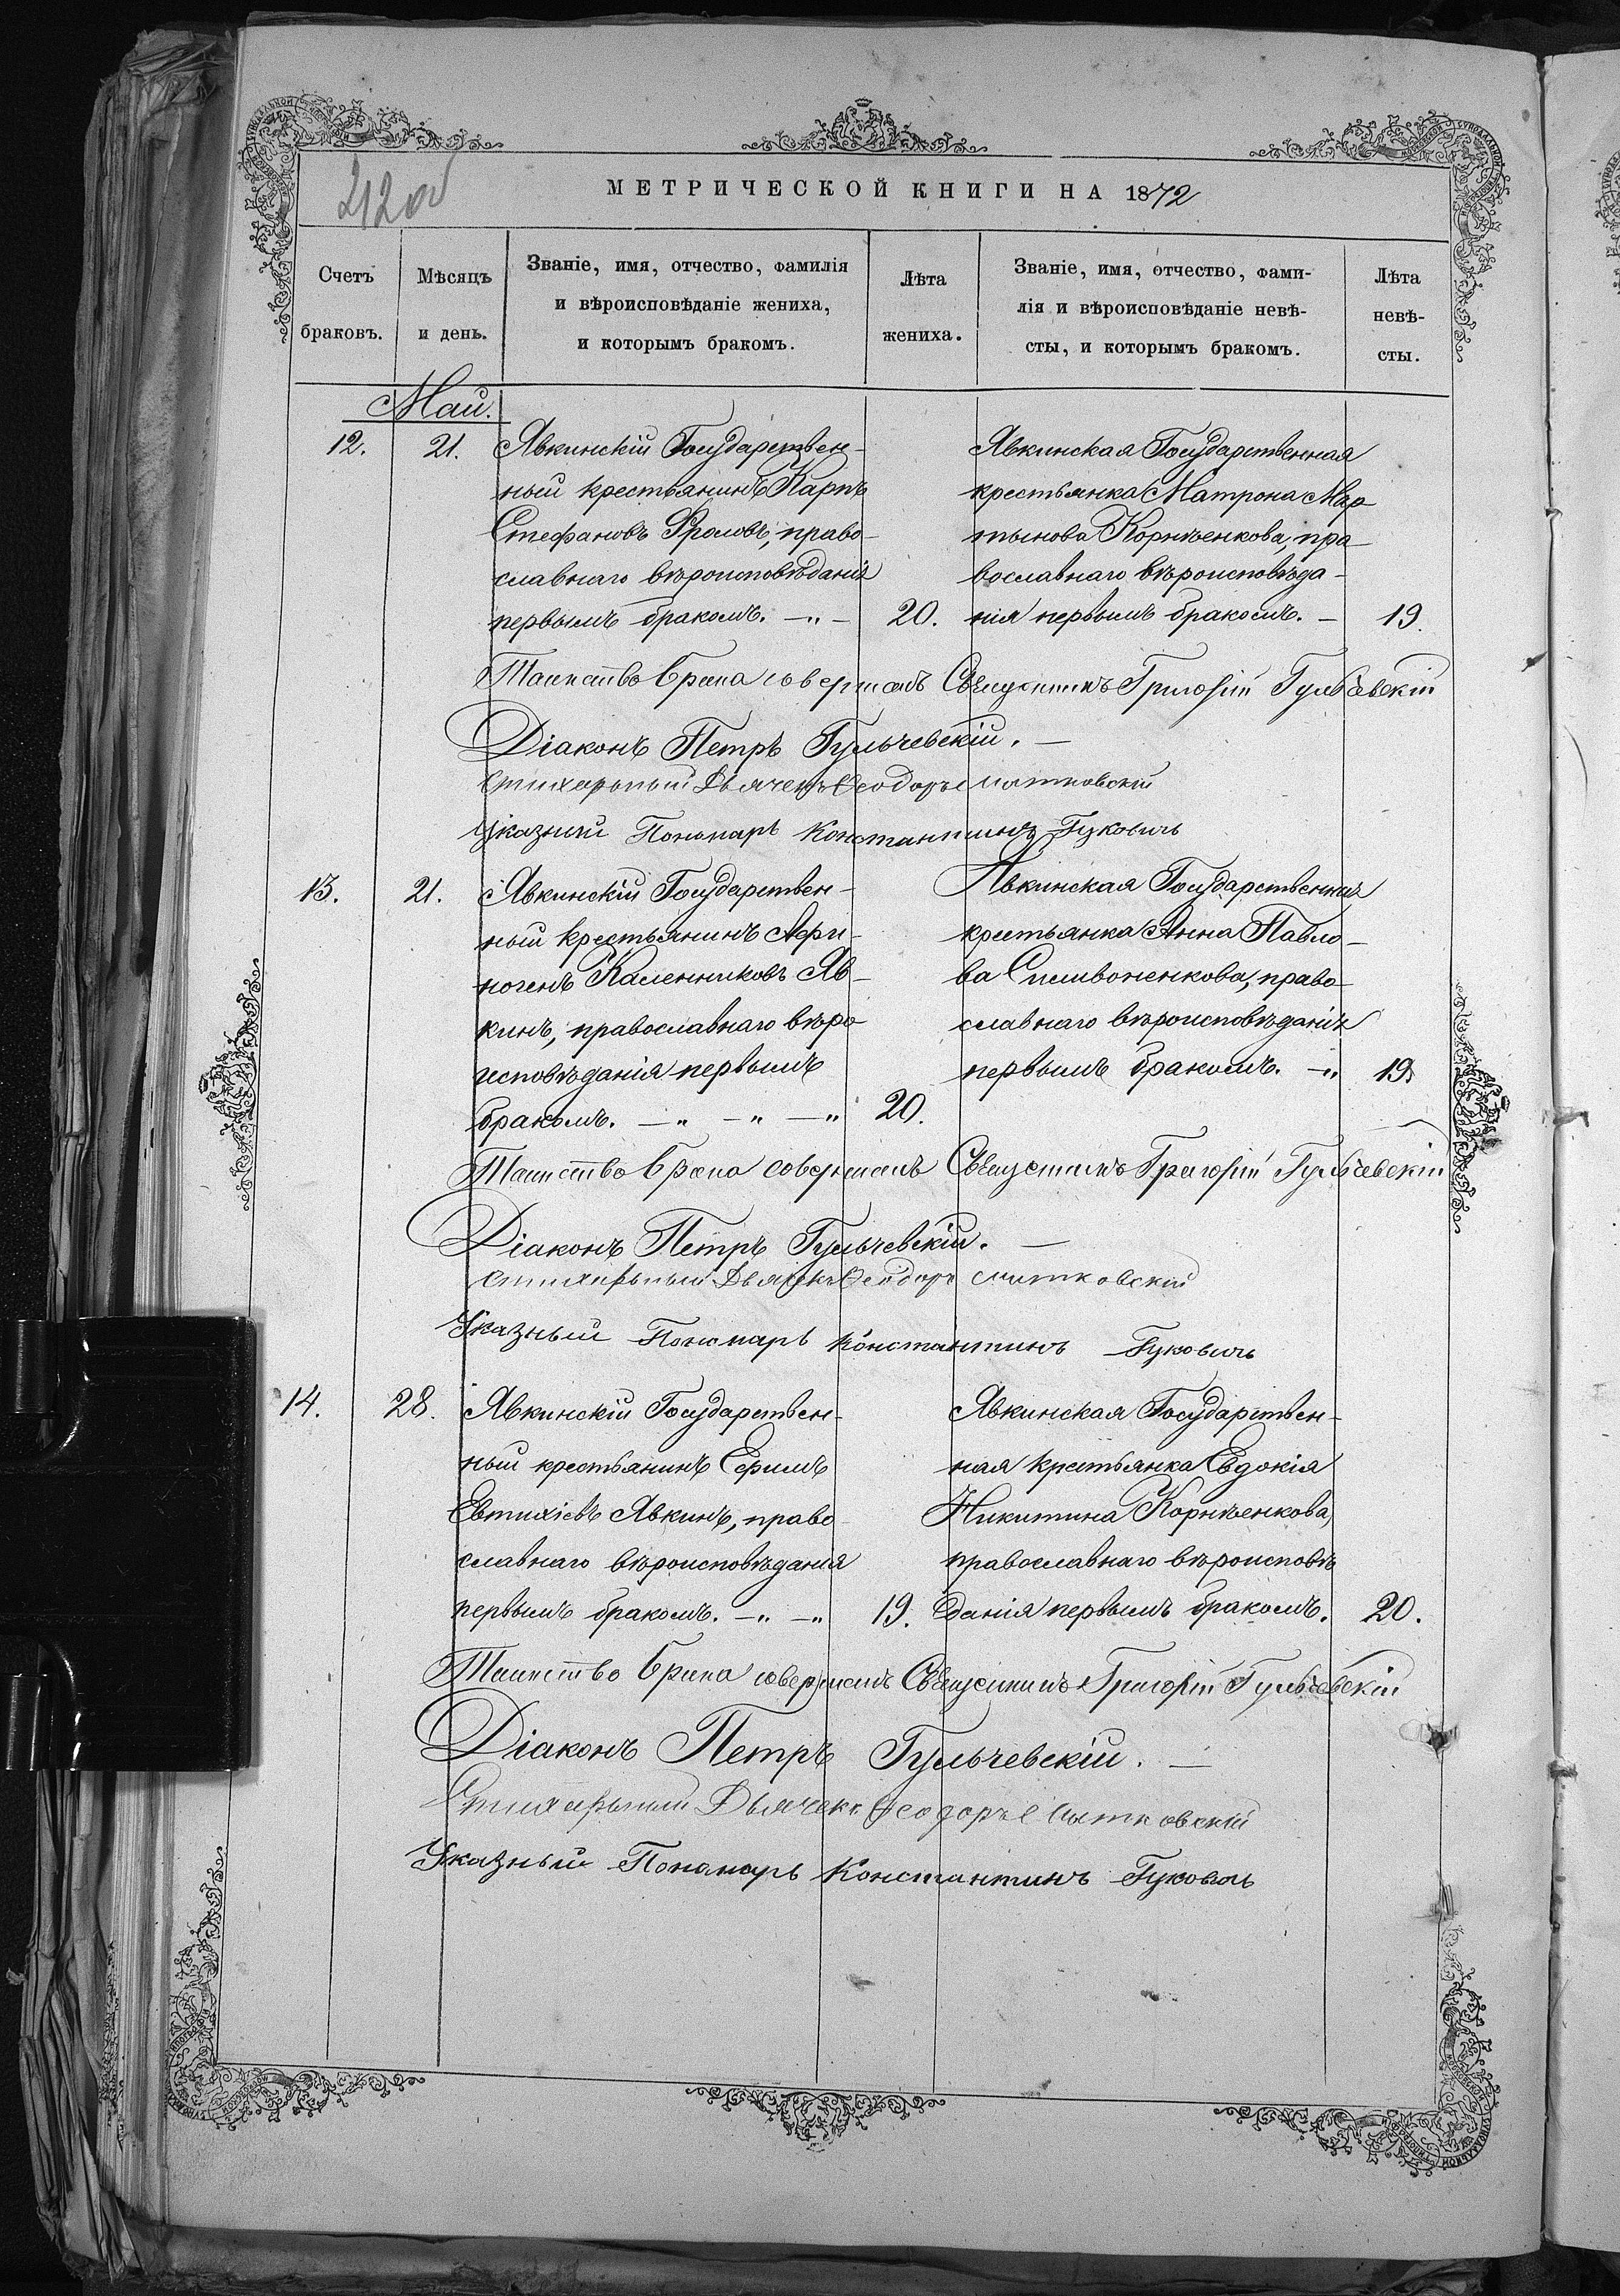 212об
МЕТРИЧЕСКОЙ КНИГИ НА 1872
Счетъ браковъ.
Мѣсяцъ и день.
Званіе, имя, отчество, фамилія
и вѣроисповѣданіе жениха,
и которымъ бракомъ.
Лѣта жениха.
Званіе, имя, отчество, фами-
лія и вѣроисповѣданіе невѣ-
сты, и которымъ бракомъ.
Лѣта невѣ-
сты.
Маій.
12. 21. Явкинскій Государствен-
ный крестьянинъ Карпъ
Стефановъ Фроловъ, право-
славнаго вѣроисповѣданія
первымъ бракомъ. 20.
Явкинская Государственная
крестьянка Матрона Мар
тынова Корнѣенкова, пра-
вославнаго вѣроисповѣда-
нія первымъ бракомъ. 19.
Таинство брака совершалъ Священникъ Григорій Гульчевскій
Діаконъ Петръ Гульчевскій.
Стихарный Дьячекъ Ѳеодоръ
Указный Пономарь Константинъ Гуковичъ
13. 21. Явкинскій Государствен-
ный крестьянинъ Аѳи-
ногенъ Каленниковъ Яв-
кинъ, православнаго вѣро
исповѣданія первымъ
бракомъ. 20.
Явкинская Государственная
крестьянка Анна Павло-
ва Силивоненкова, право-
славнаго вѣроисповѣданія
первымъ бракомъ. 19
Таинство брака совершалъ Священникъ Григорій Гульчевскій
Діаконъ Петръ Гульчевскій.
Стихарный Дьячекъ Ѳеодоръ
Указный Пономарь Константинъ Гуковичъ
14. 28. Явкинскій Государствен-
ный крестьянинъ Ефимъ
Евтихіевъ Явкинъ, право
славнаго вѣроисповѣданія
первымъ бракомъ. 19.
Явкинская Государствен-
ная крестьянка Евдокія
Никитина Корнѣенкова,
православнаго вѣроисповѣ
данія первымъ бракомъ. 20.
Таинство брака совершалъ Священникъ Григорій Гульчевскій
Діаконъ Петръ Гульчевскій.
Стихарный Дьячекъ Ѳеодоръ
Указный Пономарь Константинъ Гуковичъ